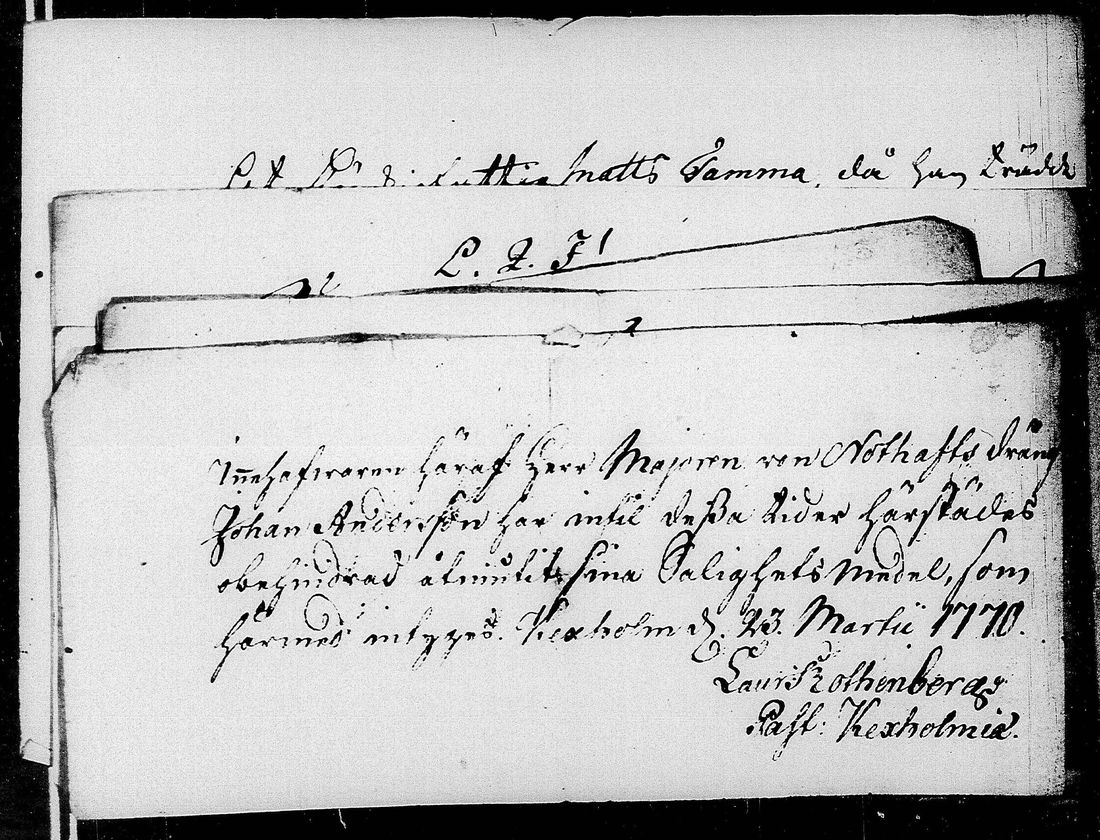 Matts Tamma, då han trädde
L. J. F!
Innehafwaren häraf Herr Majoren von Nothafts dräng
Johan Andersson har intil dessa tider härstädes
obehindrad åtniutit sina Salighets medel, som
härmed intyges. Kexholm d. 23. Martii 1770.
Laur: Rothenberg
Past: Kexholmiæ.